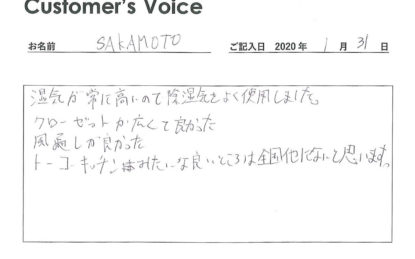 Customer's Voice
お名前 SAKAMOTO ご記入日 2020年 1月 31日
湿気が常に高いので除湿気をよく使用しました。
クローゼットが広くて良かった
風通しが良かった
トーコーキッチンはみたいな良いところは全国他にないと思います。